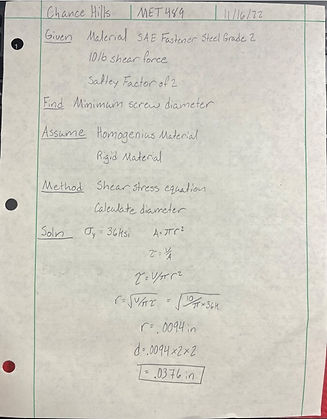 Chance Hills MET 489 11/16/22
Given Material SAE Fastener Steel Grade 2
10 lb shear force
Saftey Factor of 2
Find Minimum screw diameter
Assume Homogenius Material
Rigid Material
Method Shear stress equation
Calculate diameter
Soln σy = 36Ksi A=πr²
τ = V/A
τ = V/πr²
r=√V/πτ = √10/π×36k
r = .0094 in
d = .0094×2×2
= .0376 in